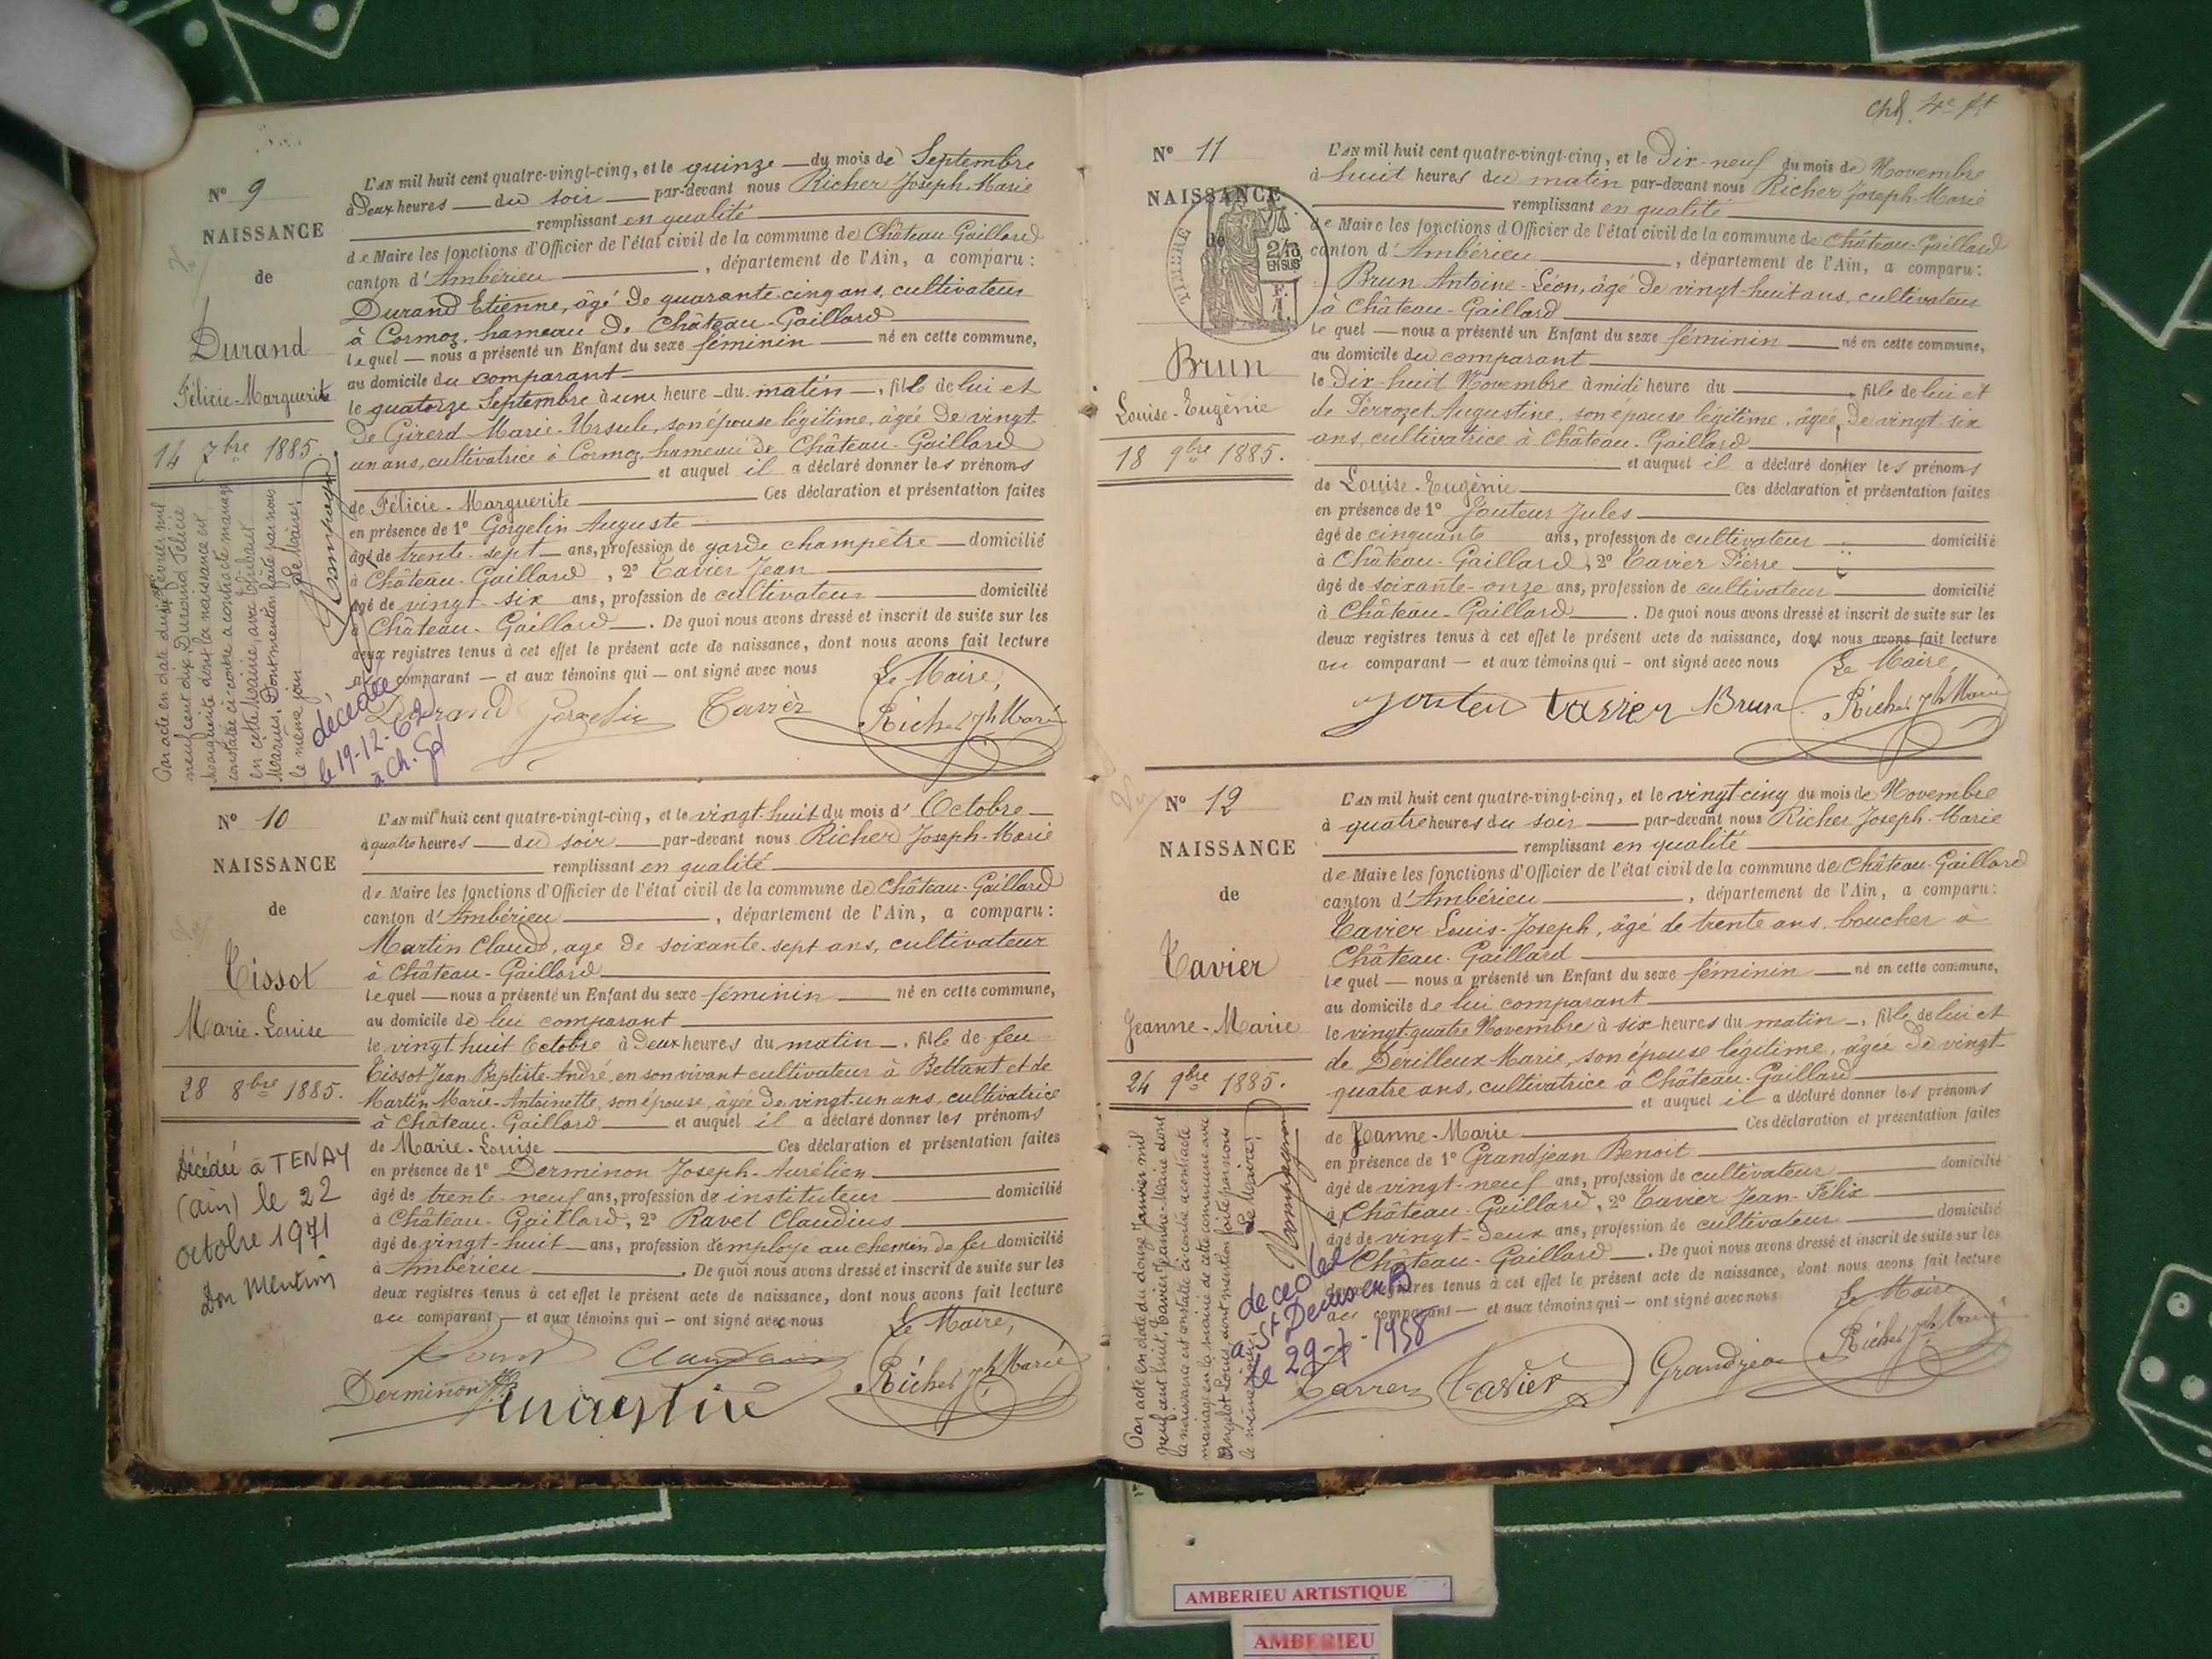 N° 9
NAISSANCE
de
Durand
Félicie-Marguerite
14 7bre 1885.
L'AN mil huit cent quatre-vingt-cinq, et le quinze du mois de Septembre
à Deux heures du soir par-devant nous Richer Joseph-Marie
remplissant en qualité
de Maire les fonctions d'Officier de l'état civil de la commune de Château-Gaillard
canton d'Ambérieu, département de l'Ain, a comparu :
Durand Etienne, âgé de quarante-cinq ans, cultivateur
à Cormoz, hameau de Château-Gaillard
lequel nous a présenté un Enfant du sexe féminin né en cette commune,
au domicile du comparant
le quatorze Septembre à une heure du matin, fille de lui et
de Girerd Marie-Ursule, son épouse légitime, âgée de vingt
un ans, cultivatrice à Cormoz, hameau de Château-Gaillard
et auquel il a déclaré donner les prénoms
de Félicie-Marguerite Ces déclaration et présentation faites
en présence de 1° Gorgelin Auguste
âgé de trente-sept ans, profession de garde champêtre domicilié
à Château-Gaillard, 2° Tavier Jean
âgé de vingt-six ans, profession de cultivateur domicilié
à Château-Gaillard. De quoi nous avons dressé et inscrit de suite sur les
deux registres tenus à cet effet le présent acte de naissance, dont nous avons fait lecture
au comparant — et aux témoins qui — ont signé avec nous
Le Maire,
Durand Gorgelin Tavier Richer Jh Marie
Par acte en date du dix Février mil
neuf cent dix, Durand Félicie
Marguerite dont la naissance est
constatée ci-contre a contracté mariage
en cette Mairie, avec
Marius. Dont mention faite par nous
le même jour Le Maire,
décédée
le 19-12-62
à Ch. Gd
N° 10
NAISSANCE
de
Tissot
Marie-Louise
28 8bre 1885.
Décédée à TENAY
(ain) le 22
octobre 1971
Don mention
L'AN mil huit cent quatre-vingt-cinq, et le vingt-huit du mois d'Octobre
à quatre heures du soir par-devant nous Richer Joseph-Marie
remplissant en qualité
de Maire les fonctions d'Officier de l'état civil de la commune de Château-Gaillard
canton d'Ambérieu, département de l'Ain, a comparu :
Martin Claude, age de soixante-sept ans, cultivateur
à Château-Gaillard
lequel — nous a présenté un Enfant du sexe féminin né en cette commune,
au domicile de lui comparant
le vingt huit Octobre à Deux heures du matin —, fille de feu
Tissot Jean Baptiste-André, en son vivant cultivateur à Bettant et de
Martin Marie-Antoinette, son épouse, âgée de vingt-un ans, cultivatrice
à Château-Gaillard et auquel il a déclaré donner les prénoms
de Marie-Louise Ces déclaration et présentation faites
en présence de 1° Derminon Joseph-Aurélien
âgé de trente-neuf ans, profession de instituteur domicilié
à Château-Gaillard, 2° Ravet Claudius
âgé de vingt-huit ans, profession d'employé au chemin de fer domicilié
à Ambérieu. De quoi nous avons dressé et inscrit de suite sur les
deux registres tenus à cet effet le présent acte de naissance, dont nous avons fait lecture
au comparant — et aux témoins qui — ont signé avec nous
Le Maire,
Derminon Richer Jh Marie
Chd.
N° 11
NAISSANCE
de
TIMBRE
2/10
EN SUS
Brun
Louise-Eugénie
18 9bre 1885.
L'AN mil huit cent quatre-vingt-cinq, et le Dix-neuf du mois de Novembre
à huit heures du matin par-devant nous Richer Joseph-Marie
remplissant en qualité
de Maire les fonctions d'Officier de l'état civil de la commune de Château-Gaillard
canton d'Ambérieu, département de l'Ain, a comparu :
Brun Antoine-Léon, âgé de vingt-huit ans, cultivateur
à Château-Gaillard
lequel — nous a présenté un Enfant du sexe féminin né en cette commune,
au domicile du comparant
le Dix-huit Novembre à midi heure du fille de lui et
de Perrozet Augustine, son épouse légitime, âgée de vingt-six
ans, cultivatrice à Château-Gaillard
et auquel il a déclaré donner les prénoms
de Louise-Eugénie Ces déclaration et présentation faites
en présence de 1° Jouteur Jules
âgé de cinquante ans, profession de cultivateur domicilié
à Château-Gaillard, 2° Tavier Pierre
âgé de soixante-onze ans, profession de cultivateur domicilié
à Château-Gaillard. De quoi nous avons dressé et inscrit de suite sur les
deux registres tenus à cet effet le présent acte de naissance, dont nous avons fait lecture
au comparant — et aux témoins qui — ont signé avec nous
Le Maire,
Jouteur Tavier Brun Richer Jh Marie
N° 12
NAISSANCE
de
Tavier
Jeanne-Marie
24 9bre 1885.
L'AN mil huit cent quatre-vingt-cinq, et le vingt-cinq du mois de Novembre
à quatre heures du soir par-devant nous Richer Joseph-Marie
remplissant en qualité
de Maire les fonctions d'Officier de l'état civil de la commune de Château-Gaillard
canton d'Ambérieu, département de l'Ain, a comparu :
Tavier Louis-Joseph, âgé de trente ans, boucher à
Château-Gaillard
lequel — nous a présenté un Enfant du sexe féminin né en cette commune,
au domicile de lui comparant
le vingt-quatre Novembre à six heures du matin —, fille de lui et
de Dérilleux Marie, son épouse légitime, âgée de vingt-
quatre ans, cultivatrice à Château-Gaillard
et auquel il a déclaré donner les prénoms
de Jeanne-Marie Ces déclaration et présentation faites
en présence de 1° Grandjean Benoit
âgé de vingt-neuf ans, profession de cultivateur domicilié
à Château-Gaillard, 2° Tavier Jean-Félix
âgé de vingt-deux ans, profession de cultivateur domicilié
à Château-Gaillard. De quoi nous avons dressé et inscrit de suite sur les
deux registres tenus à cet effet le présent acte de naissance, dont nous avons fait lecture
au comparant — et aux témoins qui — ont signé avec nous
Le Maire,
Tavier Tavier Grandjean Richer Jh Marie
Par acte en date du douze Janvier mil
neuf cent huit, Tavier Jeanne-Marie dont
la naissance est constatée ci-contre a contracté
mariage en la mairie de cette commune avec
Angelot Louis, dont mention faite par nous
le même jour. Le Maire,
décédée
à St Denis en B
le 29-7-1958
AMBERIEU ARTISTIQUE
AMBERIEU